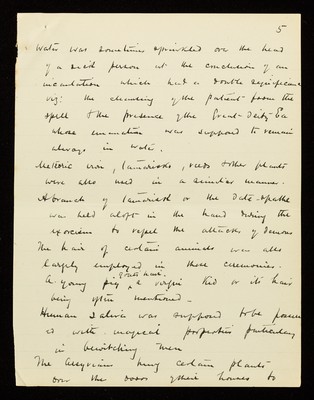 5
water was sometimes sprinkled over the head
of a sick person at the conclusion of an
incantation which had a double significance
viz: the cleansing of the patient from the
spell & the presence of the Great-Deity Ea
whose emanation was supposed to remain
always in water.
Meteoric iron, tamarisks, reeds & other plants
were also used in a similar manner.
A branch of tamarisk or the date-spathe
was held aloft in the hand during the
exorcism to repel the attacks of demons
The hair of certain animals was also
largely employed in these ceremonies.
goats hair.
A young pig, a virgin kid or its hair
being often mentioned -
Human saliva was supposed to be possess
ed with magical properties particularly
in bewitching men
The Assyrians hung certain plants
over the doors of their houses to